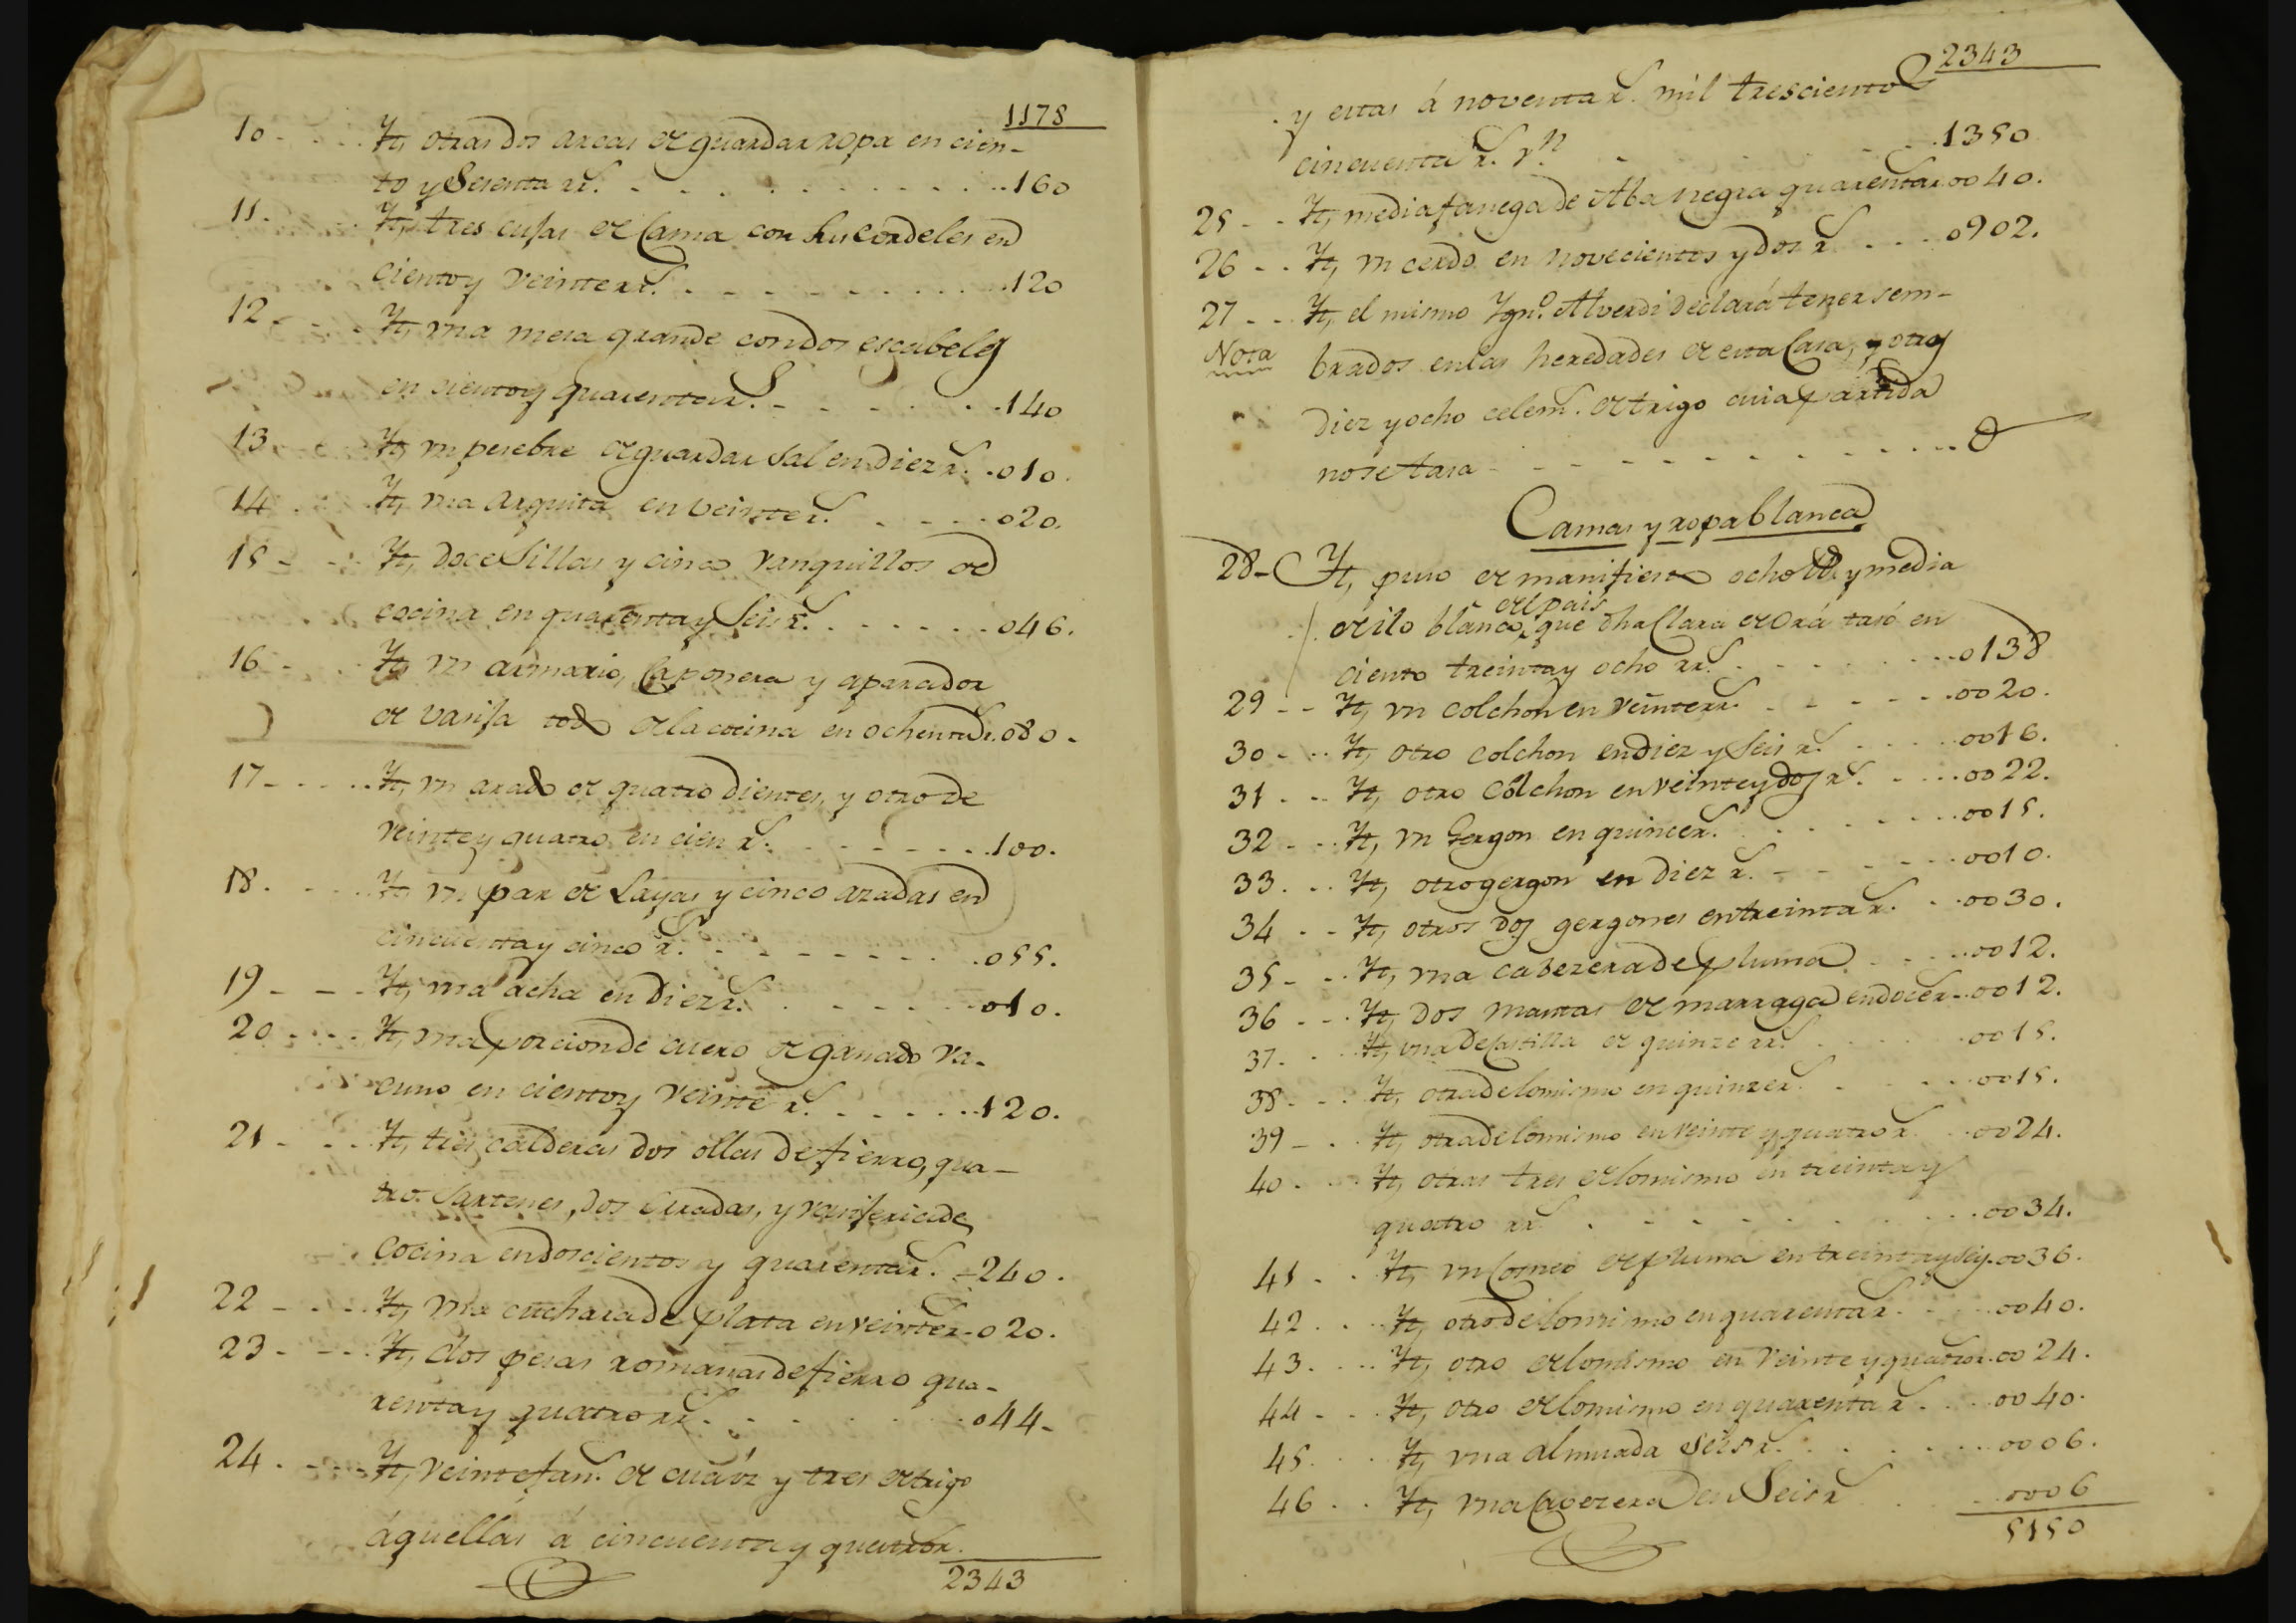 1178
10 - It, otras dos arcas de guardar ropa en cien-
to y Sesenta rr.s 160
11. It, tres cujas de Cama con sus cordeles en
ciento y veinte rr.s 120
12 - It, vna mesa grande con dos escabeles
en ciento y quarenta r.s 140
13 - It, vn pesebre de guardar sal en diez r.s 010.
14 It, vna arquita en veinte r.s 020.
15 - It, doce Sillas y cinco vanquillos de
cocina en quarenta y Seis r.s 046.
16 - It, vn armario, Caponera y aparador
de varija todo de la cocina en ochenta r.s 080 -
17 - It, vn arado de quatro dientes, y otro de
veinte y quatro en cien r.s 100.
18. It, vn par de Layas y cinco azadas en
cincuenta y cinco r.s 055.
19 - It, vna acha en diez r.s 010.
20 It, vna porcion de cuero de ganado va-
cuno en ciento y veinte r.s 120.
21 - It, tres calderas dos ollas de fierro, qua-
tro Sartenes, dos , y de
cocina en doscientos y quarenta r.s 240.
22 - It, vna cuchara de plata en veinte r.s 020.
23 - It, dos pesas romanas de fierro qua-
renta y quatro rr.s 044 -
24 - It, veinte fan.s de y tres de trigo
aquellas á cincuenta y quatro r.
2343
2343
y estas á noventa r.s mil trescientos
cincuenta r.s v.n 1350
25 - It, media fanega de Aba negra quarenta r 0040.
26 - It, vn cerdo en novecientos y dos r.s 0902.
27 - It, el mismo Ygn.o Alverdi declará tener sem-
Nota
brados en las heredades de esta Casa, y otros
diez y ocho celem.s de trigo cuia partida
no se tasa
Camas y ropa blanca
28 - It, puso de manifiesto ocho ll y media
del pais
de ilo blanco, que dha Clara de Orá tasó en
ciento treinta y ocho rr.s 0138
29 - It, vn colchon en veinte rr.s 0020.
30 - It, otro colchon en diez y Seis r.s 0016.
31 - It, otro Colchon en veinte y dos r.s 0022.
32 - It, vn Gergon en quince r.s 0015.
33. It, otro gergon en diez r.s 0010.
34 - It, otros dos gergones en treinta r.s 0030.
35 - It, vna cabezera de pluma 0012.
36 - It, dos mantas de marraga en doce r 0012.
37. It, vna de Castilla de quinze rr.s 0015.
38 - It, otra de lo mismo en quinze r.s 0015.
39 - It, otra de lo mismo en veinte y quatro r. 0024.
40. It, otras tres de lo mismo en treinta y
quatro rr.s 0034.
41 - It, vn Cosneo de pluma en treinta y seis 0036.
42. It, otro de lo mismo en quarenta r.s 0040.
43. It, otro de lo mismo en veinte y quatro r. 0024.
44 - It, otro de lo mismo en quarenta r.s 0040.
45. It, vna almuada seis r.s 0006.
46. It, vna Cavezera en Seis r.s 0006
5150